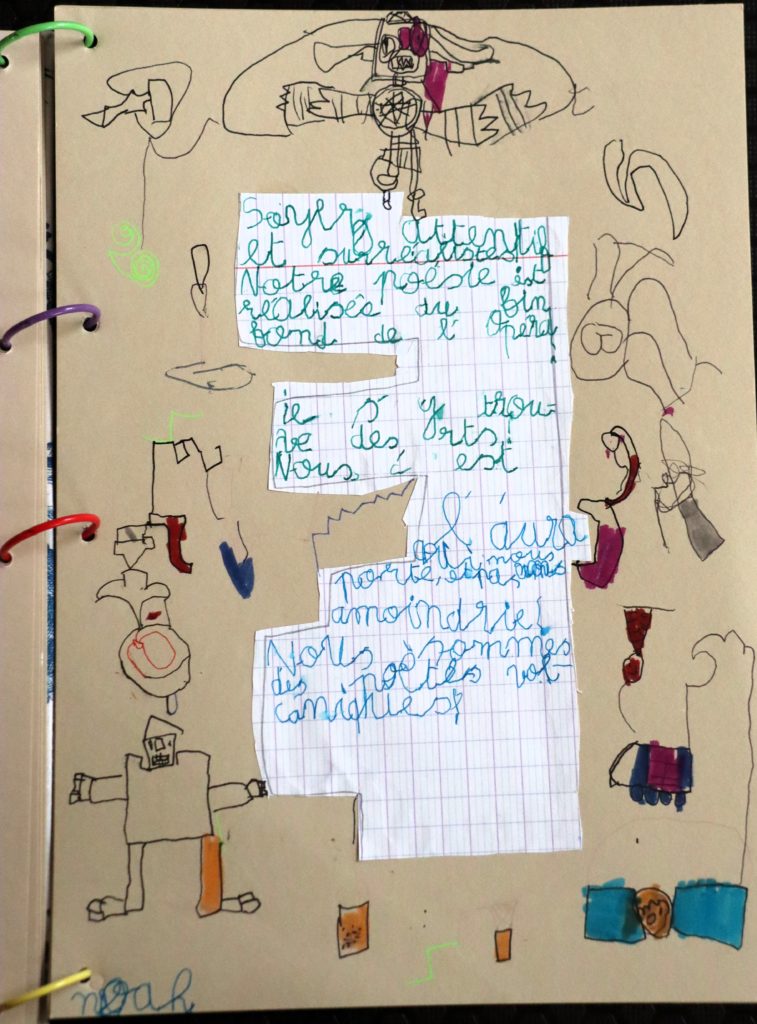 Soyez attentif
et surréalistes!
Notre poésie est
réalisée du fin
fond de l'Opéra!
ie s'y trou-
ve des Arts!
Nous, c'est
l'aura
qui nous
porte, et pas une
amoindrie!
Nous sommes
des poètes vol-
caniques!
B
noah